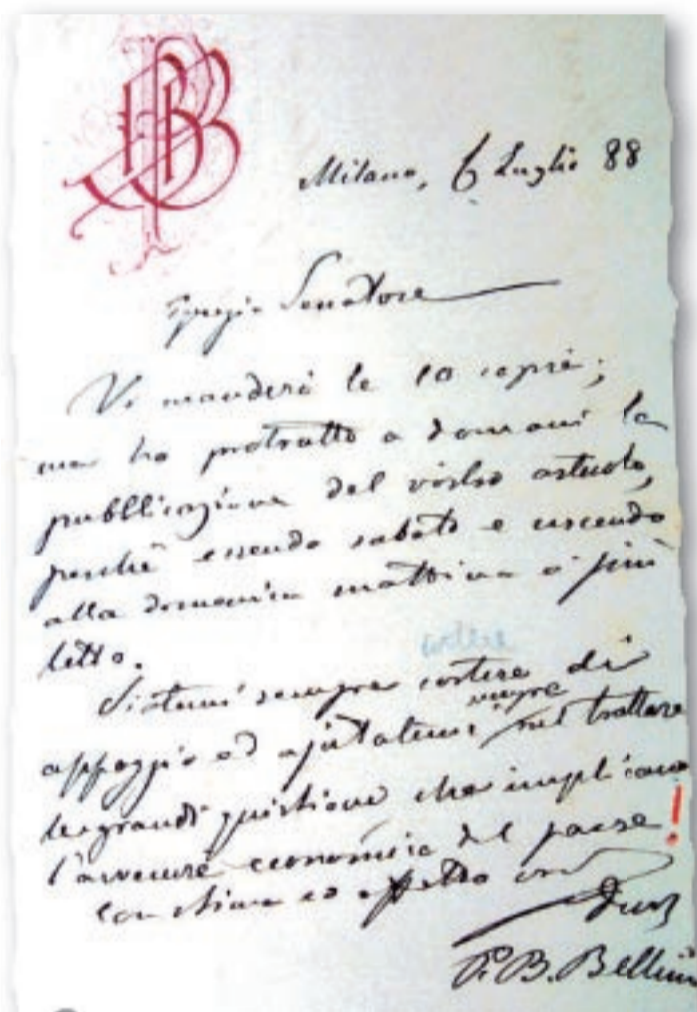 Milano, 6 Luglio 88
Egregio Senatore
Vi manderò le 10 copie;
ma ho protratto a domani la
pubblicazione del vostro articolo,
perchè essendo sabato e uscendo
alla domenica mattina è più
letto.
Siatemi sempre cortese di
appoggio ed ajutatemi sempre nel trattare
le grandi quistioni che implicano
l'avvenire economico del paese!
Con stima ed affetto
P. B. Bellini